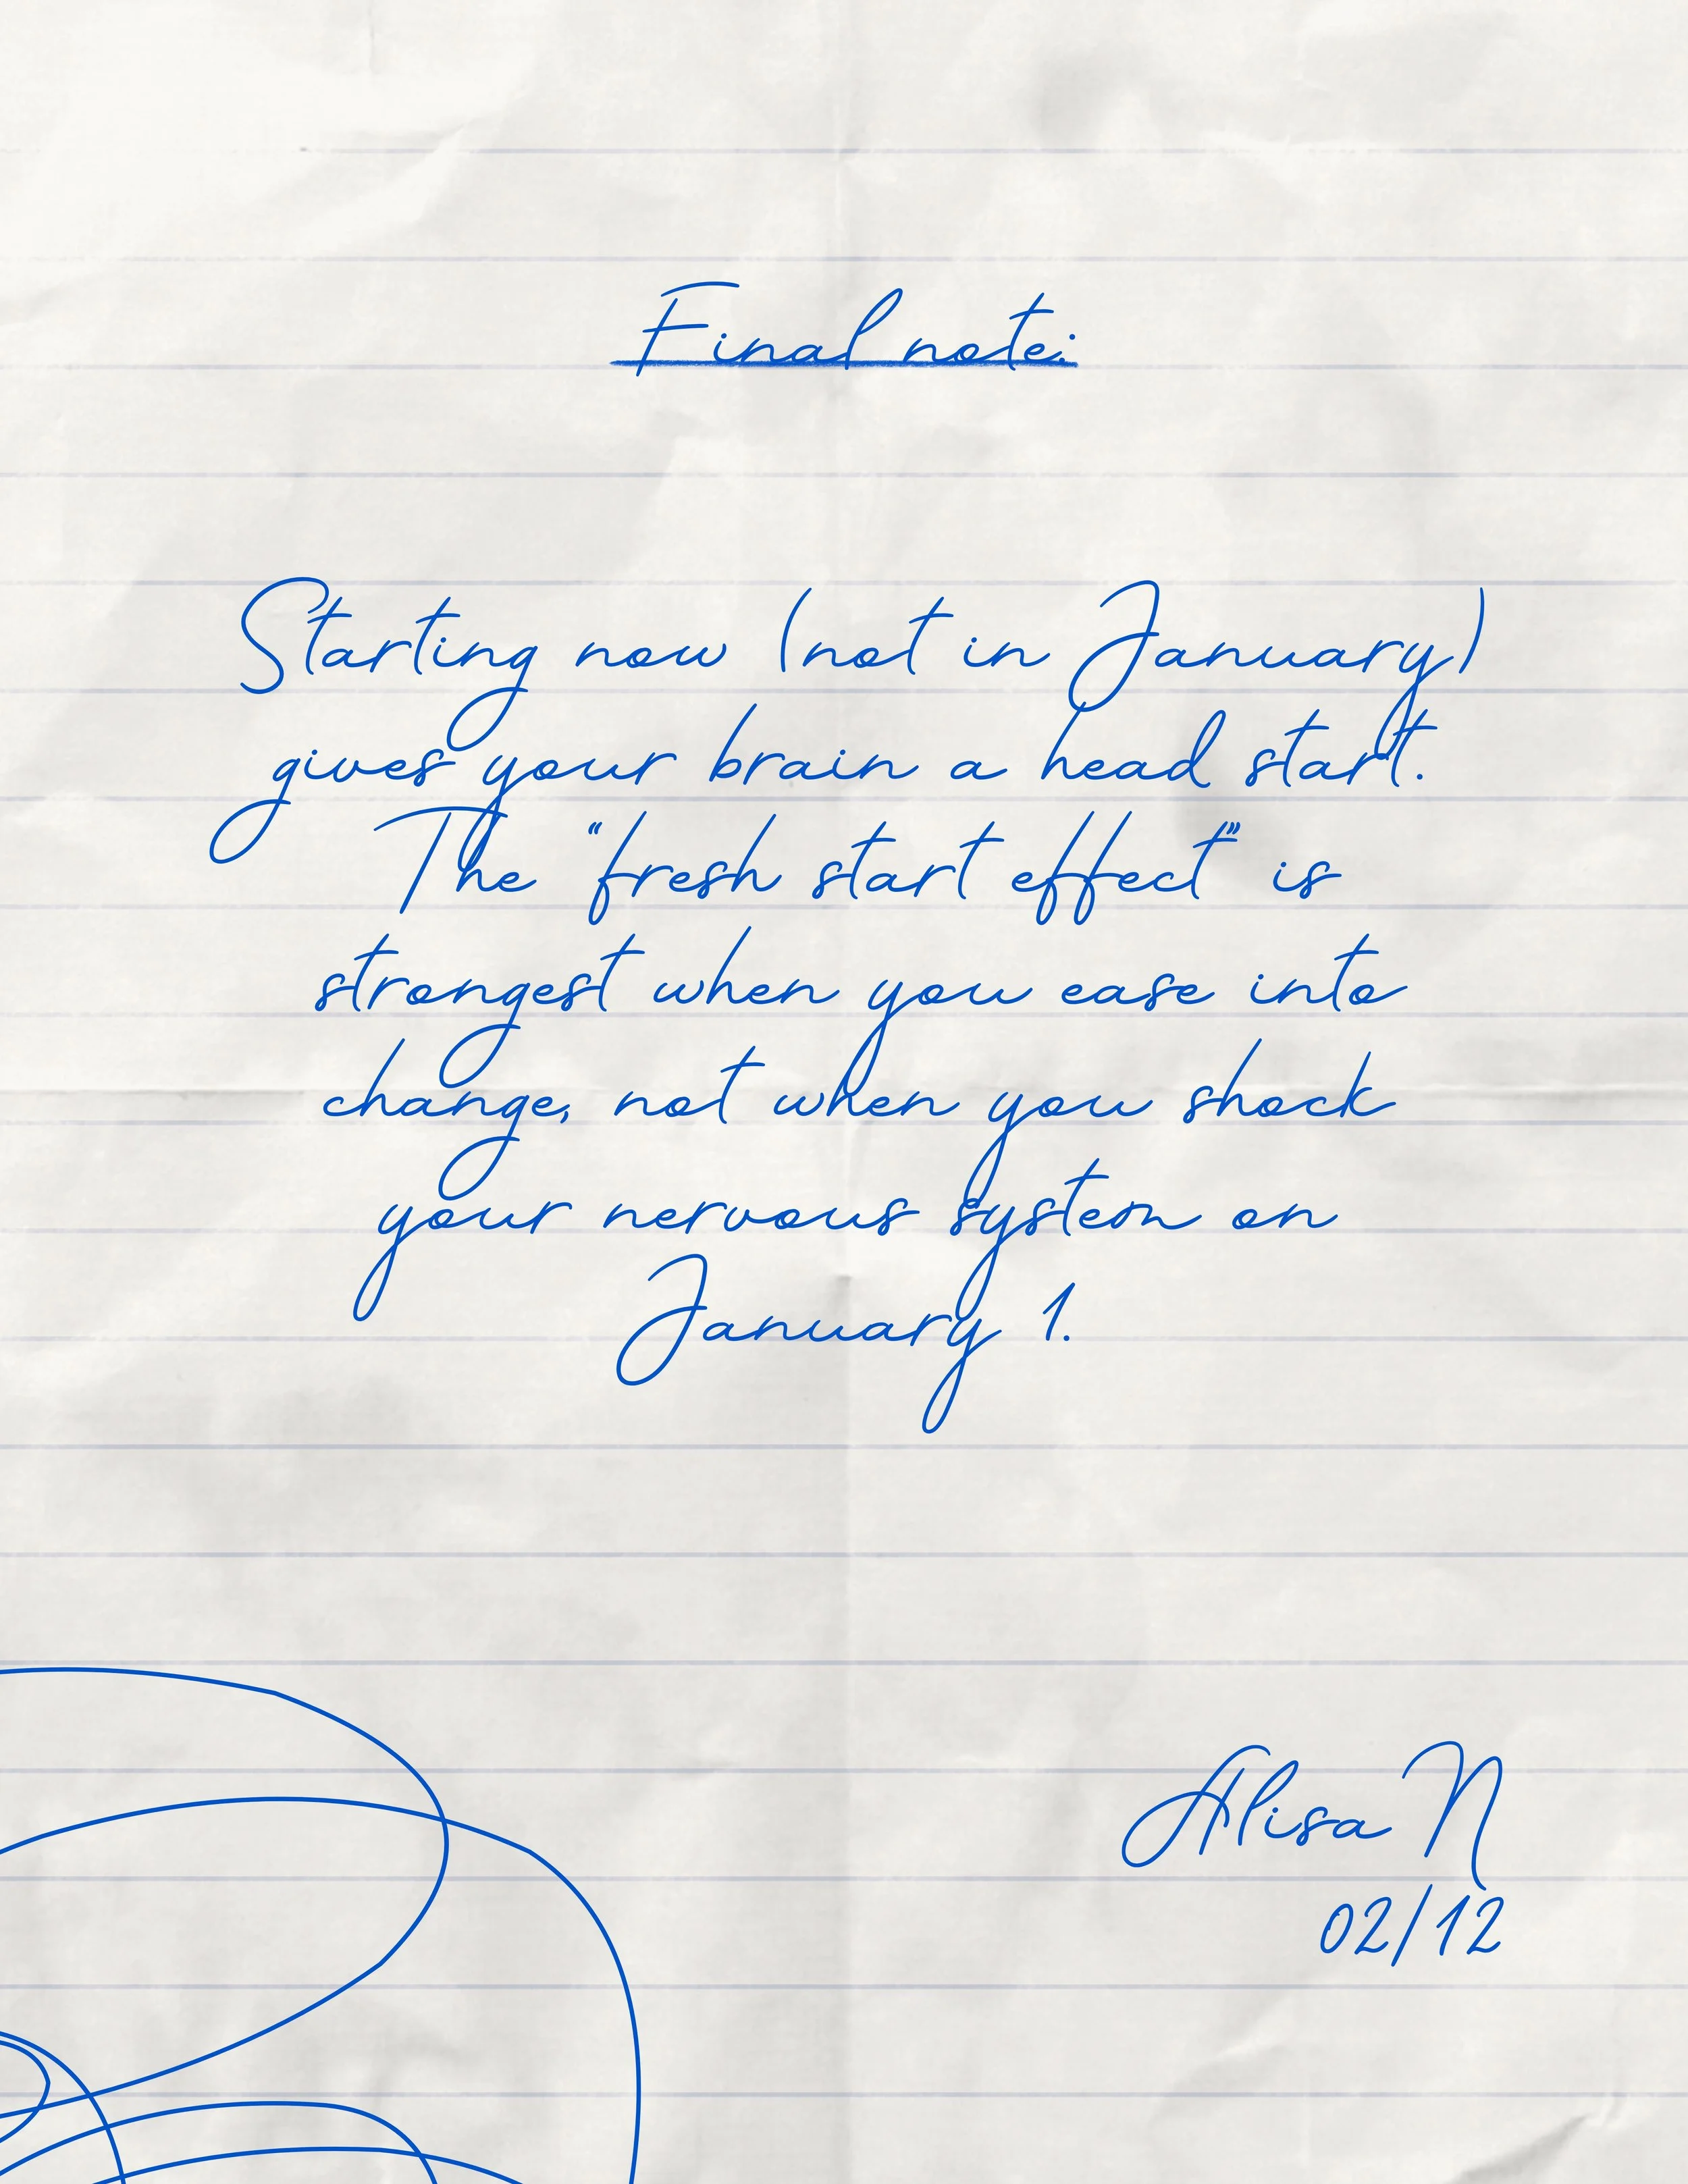 Final note:
Starting now (not in January)
gives your brain a head start.
The “fresh start effect” is
strongest when you ease into
change, not when you shock
your nervous system on
January 1.
Alisa N
02/12